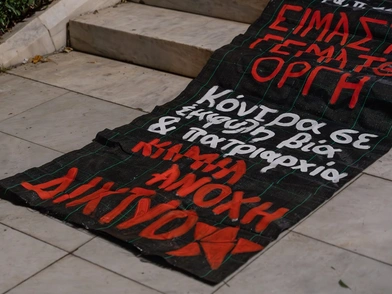 ΕΙΜΑΣ
ΓΕΜΑΤ
ΟΡΓΗ
Κόντρα σε
έμφυλη βία
& πατριαρχία
ΚΑΜΙΑ
ΑΝΟΧΗ
ΔΙΚΤΥΟ